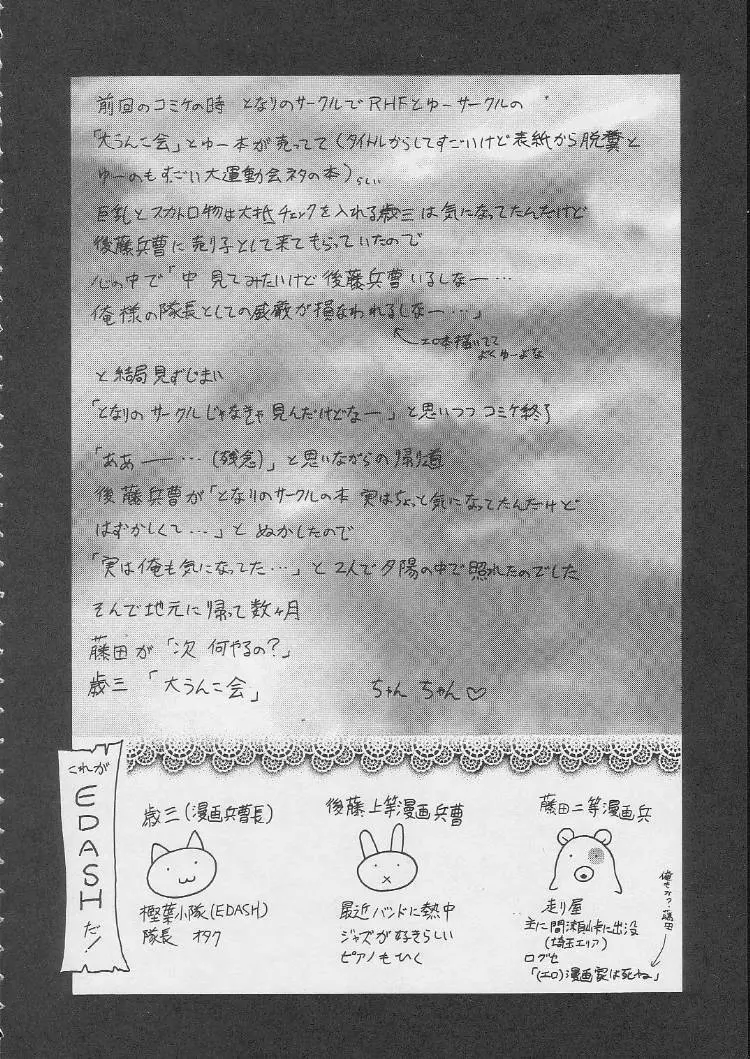 前回のコミケの時 となりのサークルでRHFとゆーサークルの
「大うんこ会」とゆー本が売ってて(タイトルからしてすごいけど表紙から脱糞と
ゆーのもすごい大運動会ネタの本)らしい
巨乳とスカトロ物は大抵チェックを入れる歳三は気になってたんだけど
後藤兵曹に売り子として来てもらっていたので
心の中で「中 見てみたいけど後藤兵曹いるしなー…
俺様の隊長としての威厳が損なわれるしなー…」
エロ本描いてて
よくゆーよな
と結局見ずじまい
「となりのサークルじゃなきゃ見んだけどなー」と思いつつコミケ終了
「ああ――…(残念)」と思いながらの帰り道
後藤兵曹が「となりのサークルの本 実はちょっと気になってたんだけど
はずかしくて…」とぬかしたので
「実は俺も気になってた…」と2人で夕陽の中で照れたのでした
そんで地元に帰って数ヶ月
藤田が「次 何やるの?」
歳三「大うんこ会」 ちゃん ちゃん♡
これが
EDASH
だ!
歳三(漫画兵曹長)
樫葉小隊(EDASH)
隊長 オタク
後藤上等漫画兵曹
最近バンドに熱中
ジャズが好きらしい
ピアノもひく
藤田二等漫画兵
走り屋
主に間瀬峠に出没
(埼玉エリア)
ログセ
「(エロ)漫画家は死ね」
俺もか?藤田